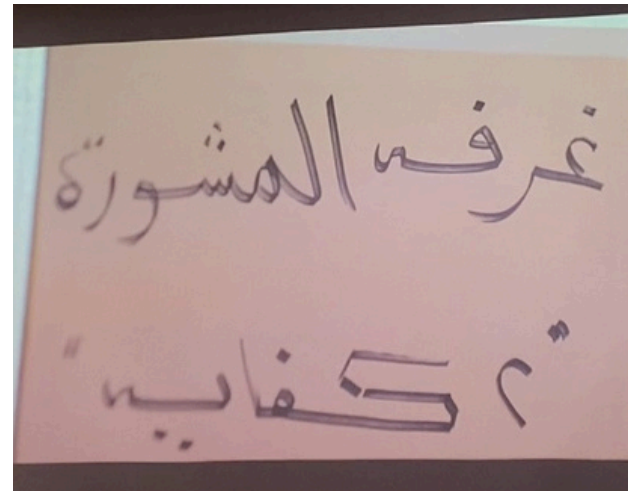 غرفه المشورة
"٢ كفايه"